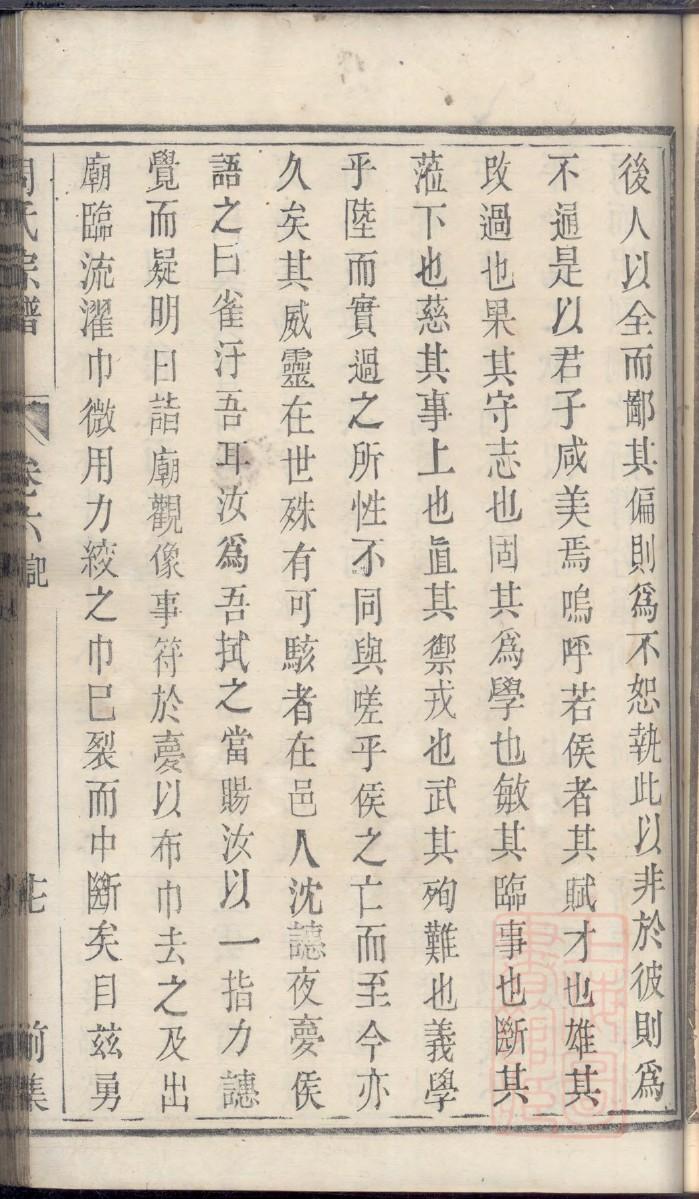 後人以全而鄙其偏則爲不恕執此以非於彼則爲
不通是以君子咸美焉嗚呼若侯者其賦才也雄其
改過也果其守志也固其爲學也敏其臨事也斷其
蒞下也慈其事上也眞其禦戎也武其殉難也義學
乎陸而實過之所性不同與嗟乎侯之亡而至今亦
久矣其威靈在世殊有可駭者在邑人沈譓夜夢侯
語之曰雀汙吾耳汝爲吾拭之當賜汝以一指力譓
覺而疑明日詣廟觀像事符於夢以布巾去之及出
廟臨流濯巾微用力絞之巾已裂而中斷矣自茲勇
周氏宗譜 卷六 記 前集